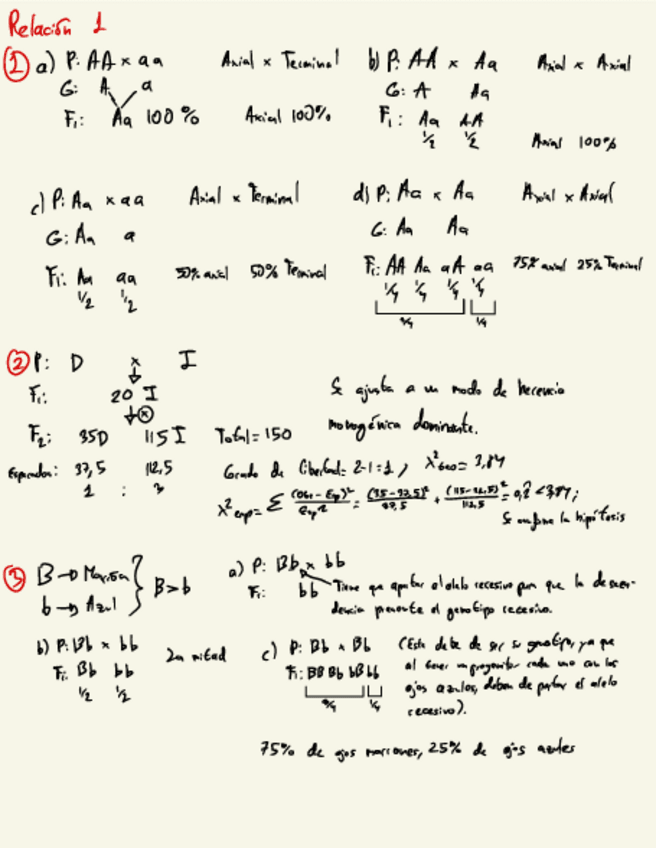 Relación 1
① a) P: AA x aa Axial x Terminal b) P: AA x Aa Axial x Axial
G: A a G: A Aa
F₁: Aa 100% Axial 100% F₁: Aa AA
1/2 1/2 Axial 100%
c) P: Aa x aa Axial x Terminal d) P: Aa x Aa Axial x Axial
G: Aa a G: Aa Aa
F₁: Aa aa 50% axial 50% Terminal F₁: AA Aa aA aa 75% axial 25% Terminal
1/2 1/2 1/4 1/4 1/4 1/4
3/4 1/4
② P: D x I
F₁: 20 I Se ajusta a un modo de herencia
F₂: 35D 115I Total = 150 monogénica dominante.
Esperados: 37,5 112,5 Grado de libertad: 2-1=1, χ² = 3,84
1 : 3 χ²exp = Σ (Obs - Exp)² / Exp = (35-37,5)² / 37,5 + (115-112,5)² / 112,5 = 0,2 < 3,84;
Se confirma la hipótesis
③ B → Marrón
b → Azul } B > b
a) P: Bb x bb
F₁: bb Tiene que aportar el alelo recesivo para que la descen-
dencia presente el genotipo recesivo.
b) P: Bb x bb La mitad
F₁: Bb bb
1/2 1/2
c) P: Bb x Bb (Este debe de ser su genotipo, ya que
F₁: BB Bb bB bb al tener un progenitor cada uno con los
3/4 1/4 ojos azules, deben de portar el alelo
recesivo).
75% de ojos marrones, 25% de ojos azules